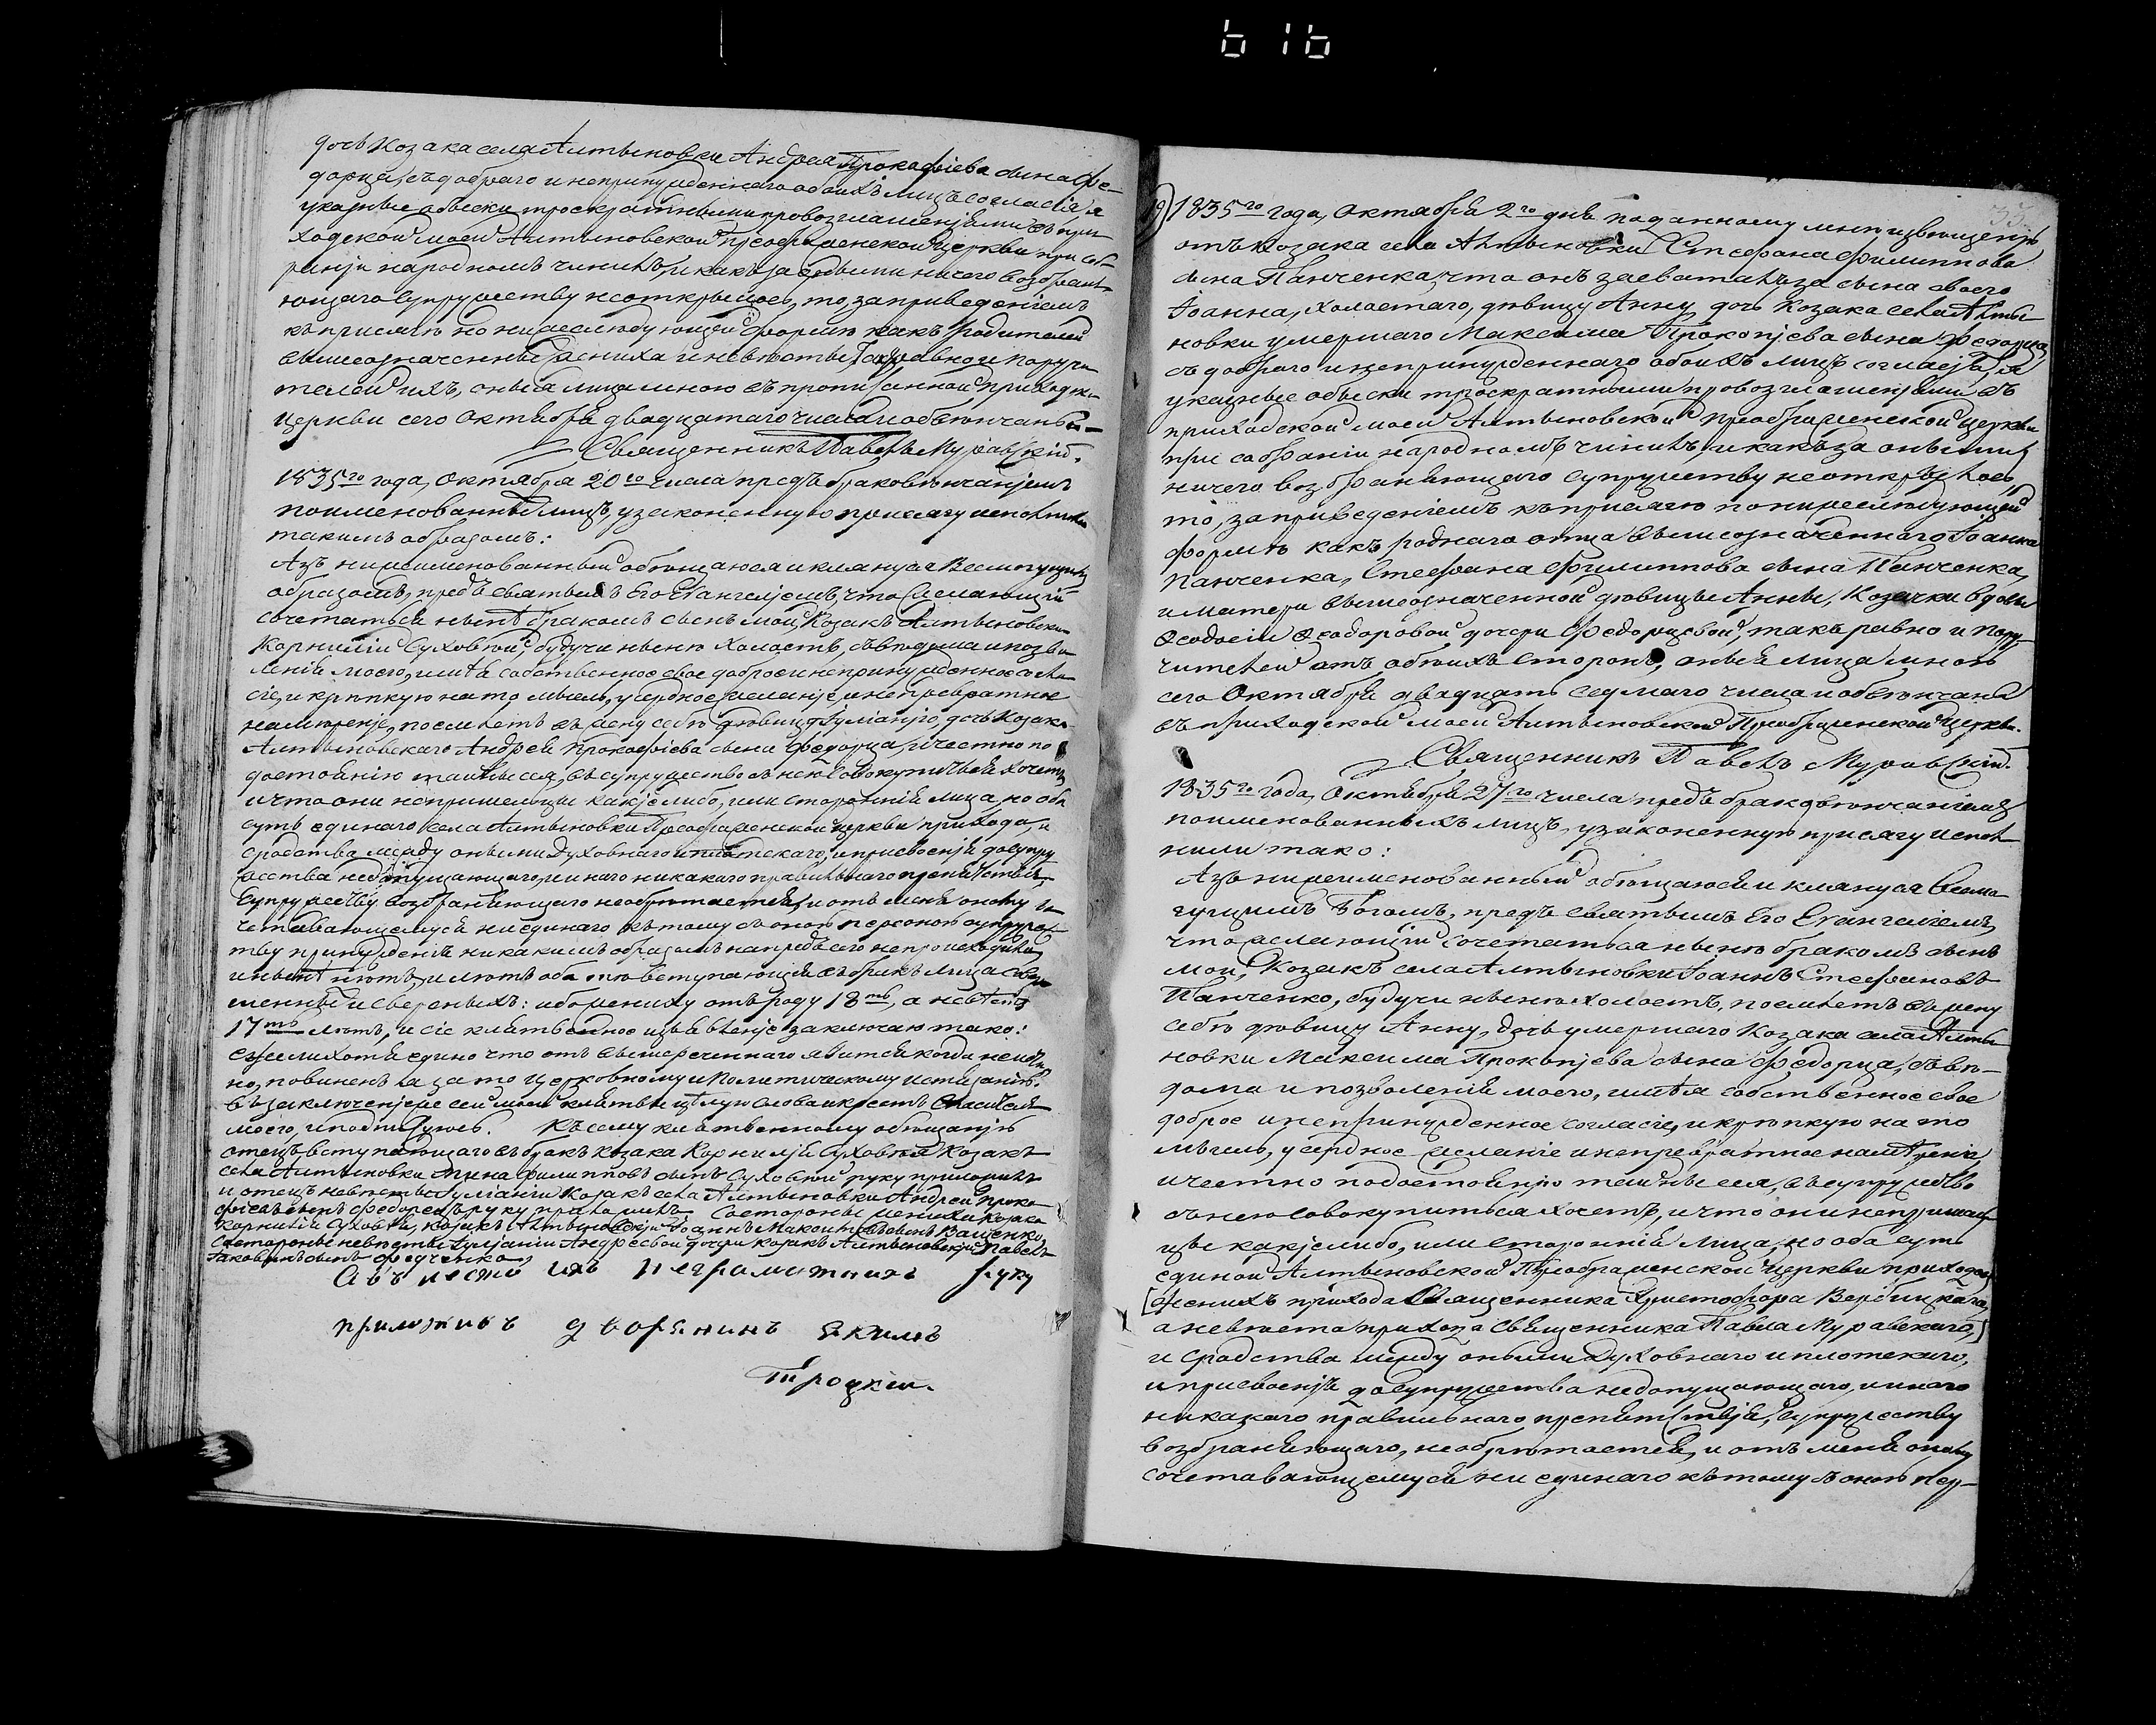 616
дочь Козака села Алтыновки Андрея Прокофіева сына Фе-
дорца, съ добраго и непринужденнаго обоихъ лицъ согласія, я
указные обыски троекратными провозглашеніями въ при-
ходской моей Алтыновской Преображенской церкви при соб-
раніи народномъ чинилъ, и какъ за оными ничего возбраня-
ющаго супружеству неоткрылось, то, за приведеніемъ
къ присягѣ по нижеслѣдующей формѣ какъ родителей
вышеозначенныхъ жениха и невѣсты, такъ равно и поручи-
телей ихъ, оныя лица мною въ прописанной приходск:
церкви сего Октября двадцатаго числа и обвѣнчаны.—
Священникъ Павелъ Муравскій.
1835го года, Октября 20го числа предъ браковѣнчаніемъ
поименованныхъ лицъ, узаконенную присягу исполнили
такимъ образомъ:
Азъ нижеименованный обѣщаюся и клянуся Всемогущимъ
образомъ, предъ святымъ Его Евангеліемъ, что желающій
сочетаться нынѣ бракомъ сынъ мой, Козакъ Алтыновскій
Корнилій Суховѣй, будучи нынѣ холостъ, съ вѣдома и позво-
ленія моего, имѣя собственное свое доброе и непринужденное согла-
сіе, и крѣпкую на то мысль, усердное желаніе, и непревратное
намѣреніе, поемлетъ въ жену себѣ дѣвицу Іуліанію, дочь Козака
Алтыновскаго Андрея Прокофіева сына Федорца, и честно по
достоянію тайны сея, въ супружество съ нею совокупиться хочетъ,
и что они непришельцы какіе либо, или сторонніе лица, но оба
суть единаго села Алтыновки Преображенской церкви прихода, и
сродства между оными духовнаго и плотскаго, и присвоенія до супру-
жества недопущающаго, и инаго никакаго правильнаго препятствія,
супружеству возбраняющаго необрѣтается, и отъ меня оному со-
четавающемуся ни единаго къ тому съ оною персоною супружес-
тву принужденія никакимъ образомъ напредь сего не происходило,
и нынѣ нѣтъ, и лѣтъ оба вступающія въ бракъ лица совер-
шенныя и сверсныхъ: ибо жениху отъ роду 18ть, а невѣстѣ
17ть лѣтъ, и сіе клятвенное изъявленіе заключаю тако:
Ежели хотя едино что отъ вышереченнаго явится когда неистин-
но, повиненъ я за то Церковному и Политическому истязанію.
Въ заключеніе же сей моей клятвы цѣлую слова и крестъ Спасителя
моего, и подписуюсь. Къ сему клятвенному обѣщанію
отецъ вступающаго въ бракъ козака Корнилія Суховѣя Козакъ
села Алтыновки Мина Филипповъ сынъ Суховѣй руку приложилъ
и отецъ невѣсты Іуліаніи Козакъ села Алтыновки Андрей Проко-
фіевъ сынъ Федорецъ руку приложилъ. Со стороны жениха Козака
Корнилія Суховѣя, козакъ Алтыновскій Іоаннъ Сынъ Ващенко,
Со стороны невѣсты Іуліаніи Андреевой дочери козакъ Алтыновскій Павелъ
Яковлевъ сынъ Федченко,
А въ место ихъ неграмотнихъ руку
приложивъ дворянинъ Якимъ
Троцкій.
1835го года, Октября 2го дня поданному мнѣ извѣщенію
отъ Козака села Алтыновки Стефана Филиппова
сына Панченка, что онъ засваталъ за сына своего
Іоанна, холостаго, дѣвицу Анну, дочь Козака села Алты-
новки умершаго Максима Прокопіева сына Федорца,
съ добраго и непринужденнаго обоихъ лицъ согласія, я
указные обыски троекратными провозглашеніями въ
приходской моей Алтыновской Преображенской церкви
при собраніи народномъ чинилъ, и какъ за оными
ничего возбраняющаго супружеству неоткрылось,
то, за приведеніемъ къ присягѣ по нижеслѣдующей
формѣ какъ роднаго отца вышеозначеннаго Іоанна
Панченка, Стефана Филиппова сына Панченка,
и матери вышеозначенной дѣвицы Анны, Козачки вдовы
Ѳеодосіи Ѳеодоровой дочери Федорцевой, такъ равно и пору-
чителей отъ обоихъ сторонъ, оныя лица мною
сего Октября двадцать седмаго числа и обвѣнчаны
въ приходской моей Алтыновской Преображенской Церкви.
Священникъ Павелъ Муравскій.
1835го года, Октября 27го числа предъ браковѣнчаніемъ
поименованныхъ лицъ, узаконенную присягу испол-
нили тако:
Азъ нижеименованный обѣщаюся и клянуся Всемо-
гущимъ Богомъ, предъ святымъ Его Евангеліемъ,
что желающій сочетаться нынѣ бракомъ сынъ
мой, Козакъ села Алтыновки Іоаннъ Стефановъ
Панченко, будучи нынѣ холостъ, поемлетъ въ жену
себѣ дѣвицу Анну, дочь умершаго Козака села Алты-
новки Максима Прокопіева сына Федорца, съ вѣ-
дома и позволенія моего, имѣя собственное свое
доброе и непринужденное согласіе, и крѣпкую на то
мысль, усердное желаніе и непревратное намѣреніе,
и честно по достоянію тайны сея, въ супружество
съ нею совокупиться хочетъ, и что они непришель-
цы какіе либо, или сторонніе лица, но оба суть
единой Алтыновской Преображенской церкви прихода
[женихъ прихода Священника Христофора Вербицкаго,
а невѣста прихода Священника Павла Муравскаго,]
и сродства между оными духовнаго и плотскаго,
и присвоенія до супружества недопущающаго, и инаго
никакаго правильнаго препятствія, супружеству
возбраняющаго, необрѣтается, и отъ меня оному
сочетавающемуся ни единаго къ тому съ оною пер-